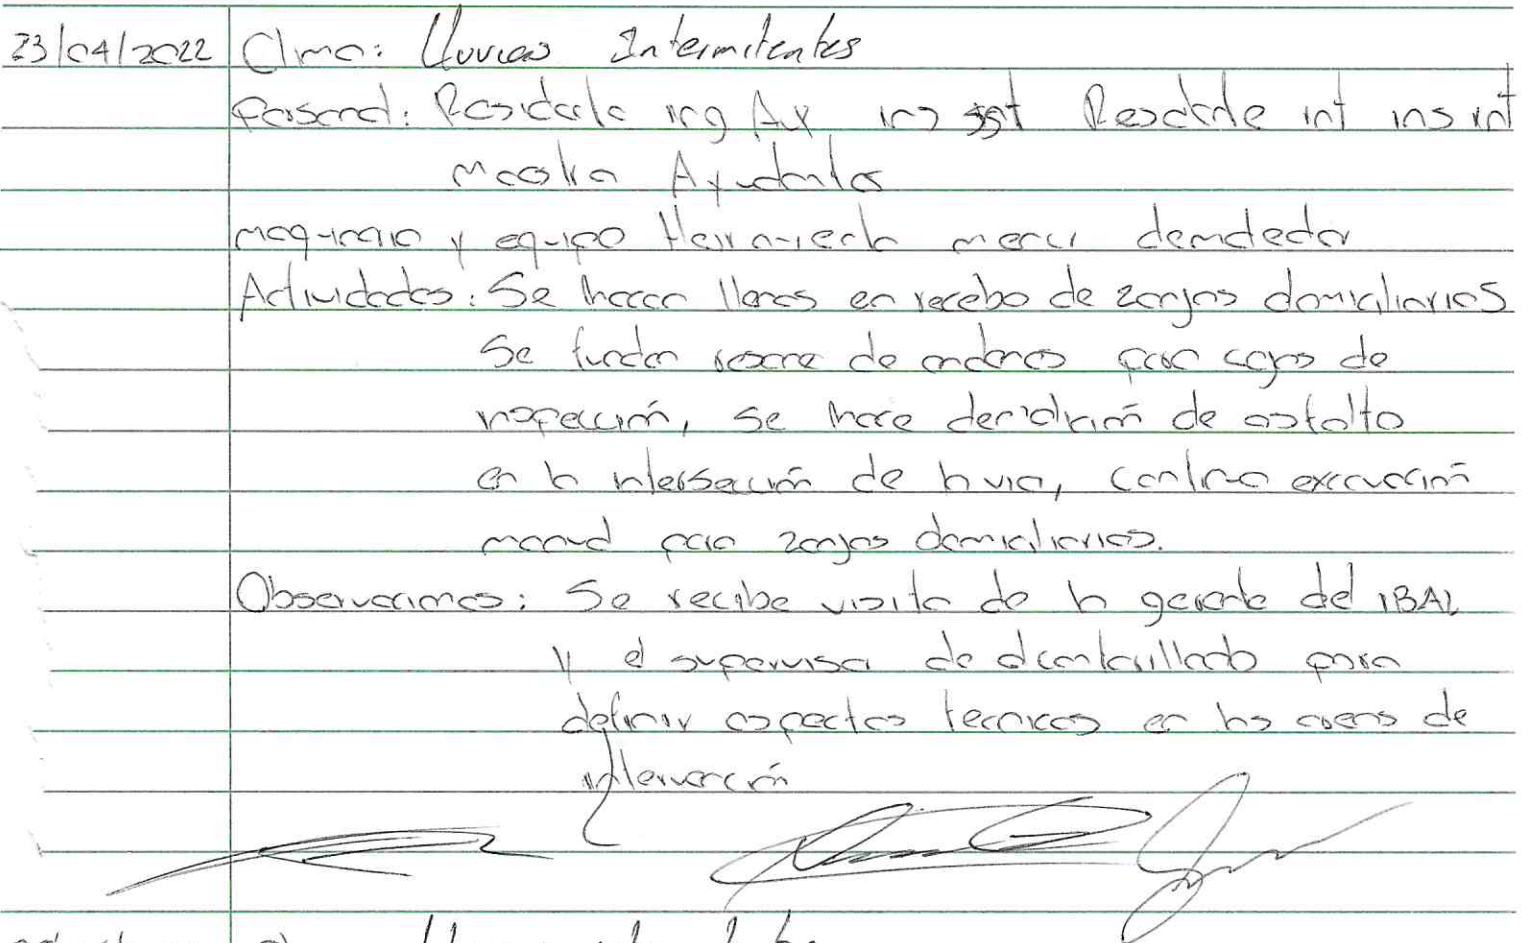 23/04/2022 Clima: Lluvias Intermitentes
Personal: Residente ing Ax ins sst Residente int ins int
maestra Ayudantes
maquinaria y equipo Herramienta menor demoledor
Actividades: Se hacen llenos en recebo de zanjas domiciliarias
Se funden de andenes para cajas de
inspección, se hace demolición de asfalto
en la interseccion de la via, continua excavación
manual para zanjas domiciliarias.
Observaciones: Se recibe visita de la gerente del IBAL
y el supervisor de alcantarillado para
definir aspectos tecnicos en las areas de
intervención